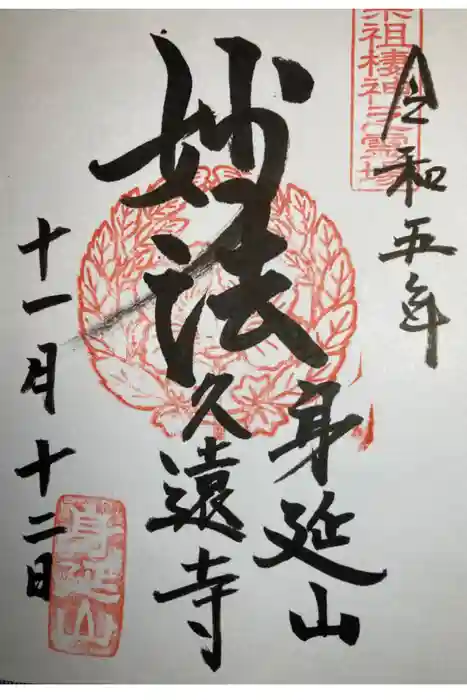 宗祖棲神之霊場
令和五年
妙法
身延山
久遠寺
十一月十二日
身延山